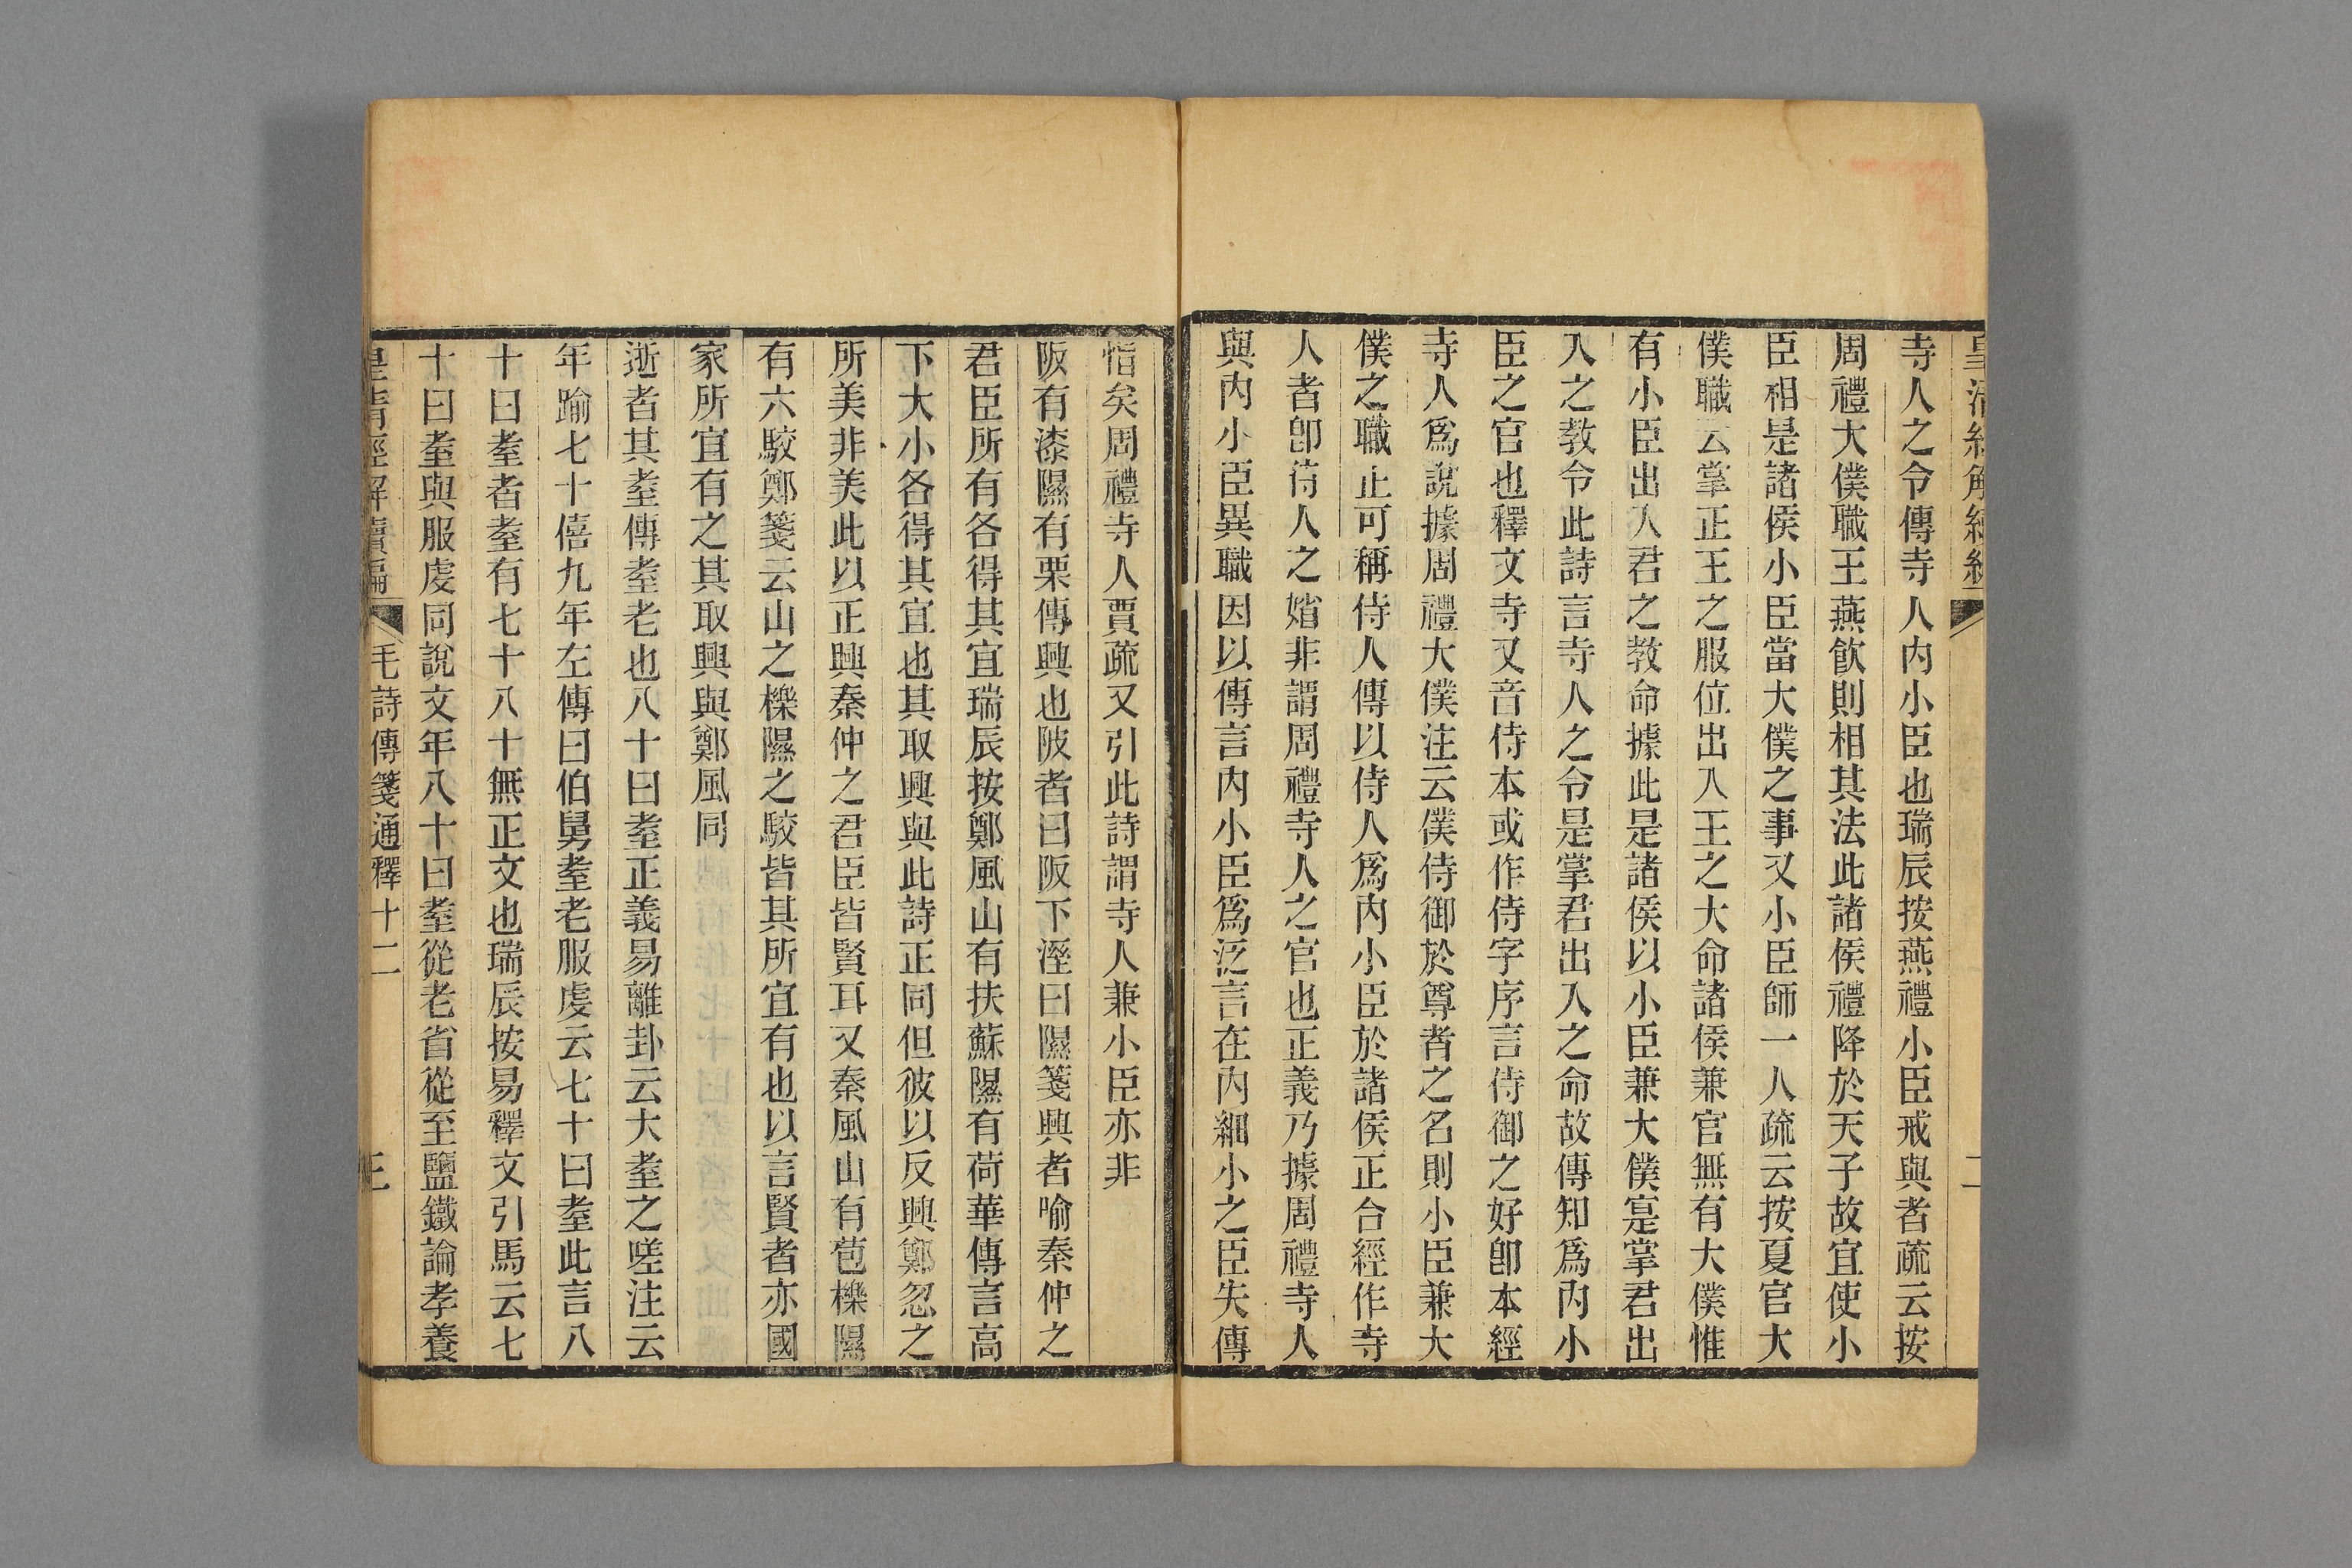 皇清經解續編
二
寺人之令傳寺人內小臣也瑞辰按燕禮小臣戒與者疏云按
周禮大僕職王燕飮則相其法此諸侯禮降於天子故宜使小
臣相是諸侯小臣當大僕之事又小臣師一人疏云按夏官大
僕職云掌正王之服位出入王之大命諸侯兼官無有大僕惟
有小臣出入君之教命據此是諸侯以小臣兼大僕寔掌君出
入之教令此詩言寺人之令是掌君出入之命故傳知爲內小
臣之官也釋文寺又音侍本或作侍字序言侍御之好卽本經
寺人爲說據周禮大僕注云僕侍御於尊者之名則小臣兼大
僕之職止可稱侍人傳以侍人爲內小臣於諸侯正合經作寺
人者卽侍人之媘非謂周禮寺人之官也正義乃據周禮寺人
與內小臣異職因以傳言內小臣爲泛言在內細小之臣失傳
恉矣周禮寺人賈疏又引此詩謂寺人兼小臣亦非
阪有漆隰有栗傳興也陂者曰阪下溼曰隰箋興者喻秦仲之
君臣所有各得其宜瑞辰按鄭風山有扶蘇隰有荷華傳言高
下大小各得其宜也其取興與此詩正同但彼以反興鄭忽之
所美非美此以正興秦仲之君臣皆賢耳又秦風山有苞櫟隰
有六駮鄭箋云山之櫟隰之駮皆其所宜有也以言賢者亦國
家所宜有之其取興與鄭風同
逝者其耋傳耋老也八十曰耋正義易離卦云大耋之嗟注云
年踰七十僖九年左傳曰伯舅耋老服虔云七十曰耋此言八
十曰耋者耋有七十八十無正文也瑞辰按易釋文引馬云七
十曰耋與服虔同說文年八十曰耋從老省從至鹽鐵論孝養
皇清經解續編
毛詩傳箋通釋十二
三